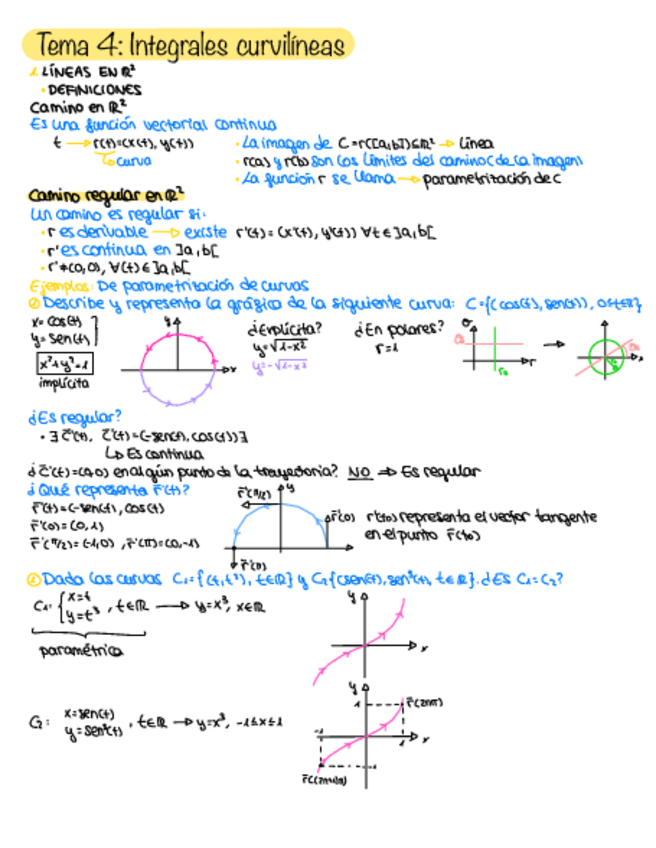 Tema 4: Integrales curvilíneas
1. LÍNEAS EN R²
· DEFINICIONES
Camino en R²
Es una función vectorial continua
t → r(t)=(x(t), y(t))
curva
· La imagen de C=r([a,b])⊆R² → línea
· r(a) y r(b) son los límites del camino (de la imagen)
· La función r se llama → parametrización de C
Camino regular en R²
Un camino es regular si:
· r es derivable → existe r'(t)=(x'(t), y'(t)) ∀t∈]a,b[
· r' es continua en ]a,b[
· r'≠(0,0), ∀(t)∈]a,b[
Ejemplos: De parametrización de curvas
Describe y representa la gráfica de la siguiente curva: C={(cos(t), sen(t)),
x=cos(t)
y=sen(t)
x²+y²=1
implícita
y
x
¿Explícita?
y=√1-x²
y=-√1-x²
¿En polares?
r=1
r
¿Es regular?
· ∃ C'(t), C'(t)=(-sen(t), cos(t))∃
↳ Es continua
¿C'(t)=(0,0) en algún punto de la trayectoria? NO ⇒ Es regular
¿Qué representa r'(t)?
r'(t)=(-sen(t), cos(t)
r'(0)=(0,1)
r'(π/2)=(-1,0), r'(π)=(0,-1)
r'(π/2)
y
r'(0)
r'(0)
r'(t0) representa el vector tangente
en el punto r(t0)
Dada las curvas C1={(t,t³), t∈R} y C2{(sen(t),sen³(t), t∈R}. ¿Es C1=C2?
C1: { x=t
y=t³ , t∈R → y=x³, x∈R
paramétrica
y
x
C2: x=sen(t)
y=sen³(t) , t∈R → y=x³, -1≤x≤1
y
1
-1
1
x
-1